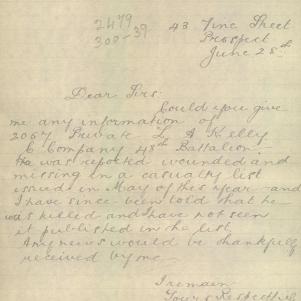 2479
300-39
43 Vine Street
Prospect
June 28th
Dear Sirs
Could you give
me any information of
2067 Private L A Kelly
C Company 48th Battalion
He was reported wounded and
missing in a casualty list
issued in May of this year and
I have since been told that he
was killed and have not seen
it published in the list
Any news would be thankfully
received by me
I remain
Yours Respectfully